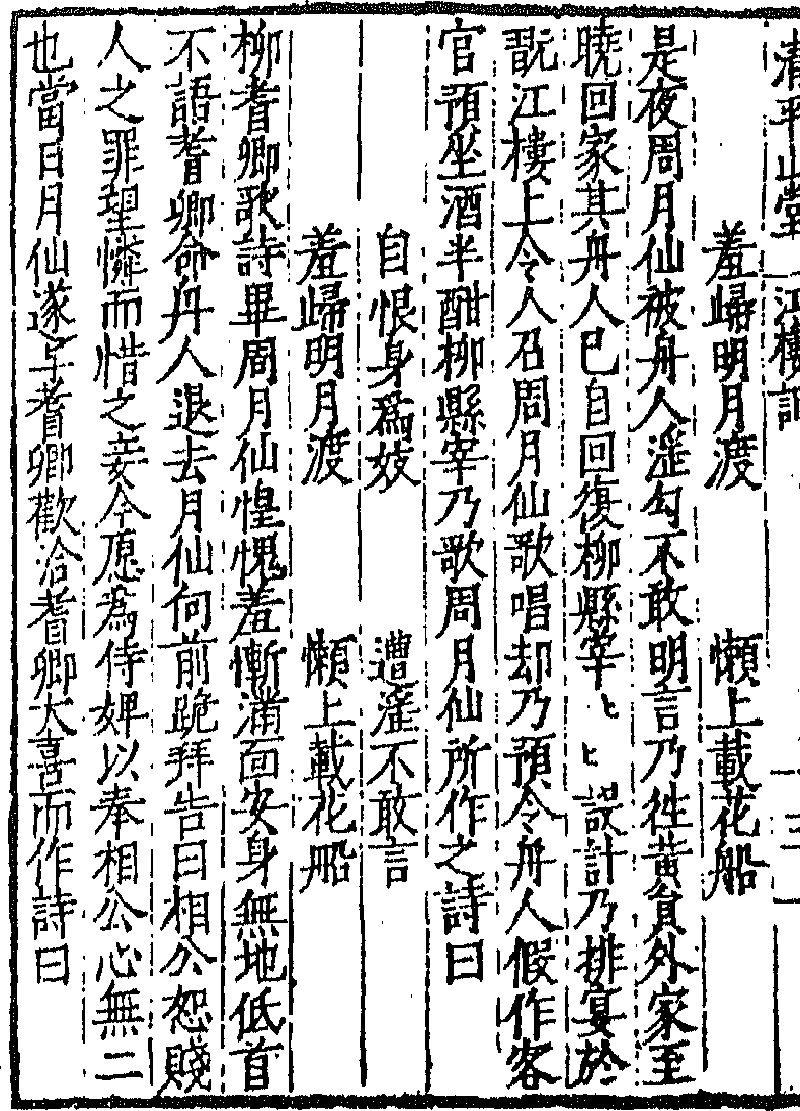 清平山堂 江樓記 三
羞歸明月渡 懶上載花船
是夜周月仙被舟人淫勾不敢明言乃徃黄員外家至
曉回家其舟人已自回復柳縣宰〻〻設計乃排宴於
翫江樓上令人召周月仙歌唱却乃預令舟人假作客
官預坐酒半酣柳縣宰乃歌周月仙所作之詩曰
自恨身爲妓 遭淫不敢言
羞歸明月渡 懶上載花船
柳耆卿歌詩畢周月仙惶愧羞慚滿面安身無地低首
不語耆卿命舟人退去月仙向前跪拜告曰相公恕賤
人之罪望憐而惜之妾今愿爲侍婢以奉相公心無二
也當日月仙遂与耆卿歡洽耆卿大喜而作詩曰